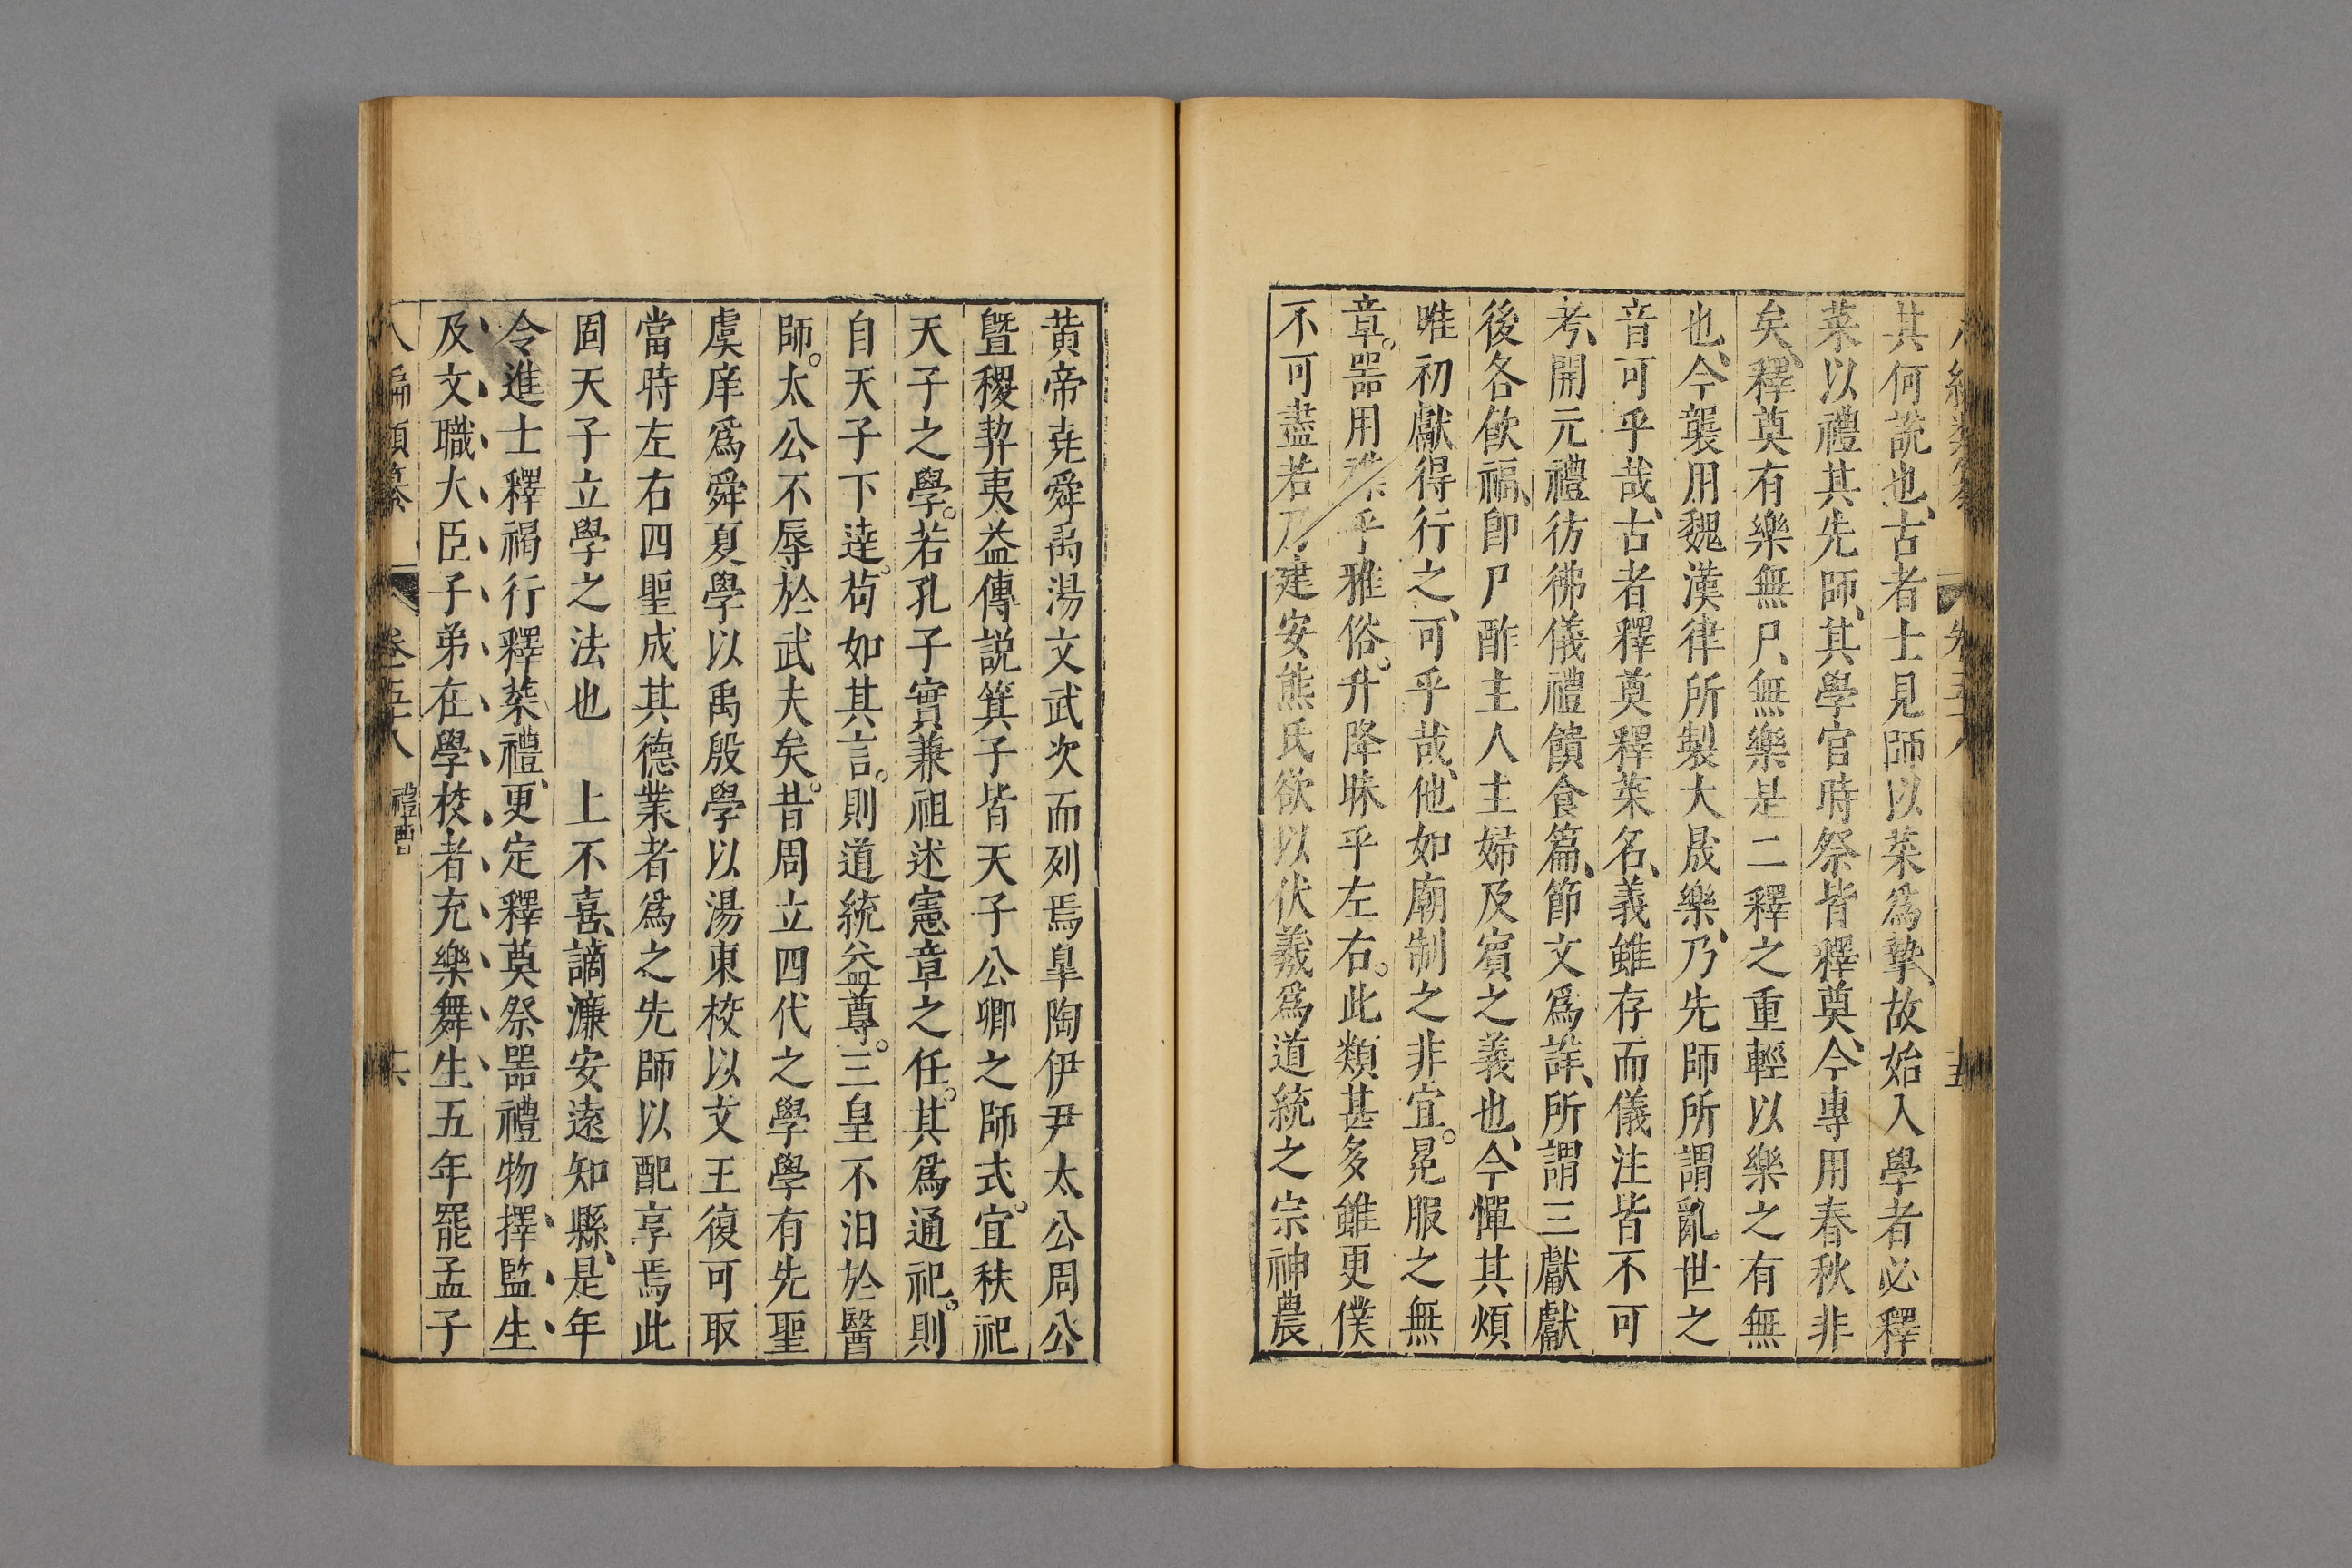 其何說也、古者士見師以菜爲摯、故始入學者必釋
菜以禮其先師、其學官時祭皆釋奠、今專用春秋非
矣、釋奠有樂無尸、無樂是二釋之重輕以樂之有無
也、今襲用魏漢律所製大晟樂、乃先師所謂亂世之
音可乎哉、古者釋奠釋菜名、義雖存而儀注皆不可
考、開元禮彷彿儀禮饋食篇、節文爲詳、所謂三獻獻
後各飲福、卽尸酢主人主婦及賓之義也、今憚其煩
唯初獻得行之、可乎哉、他如廟制之非宜。冕服之無
章。器用乎雅俗。升降昧乎左右。此類甚多雖更僕
不可盡若乃建安熊氏欲以伏羲爲道統之宗神農
黃帝堯舜禹湯文武次而列焉皐陶伊尹太公周公
曁稷契夷益傳說箕子皆天子公卿之師式。宜秩祀
天子之學。若孔子實兼祖述憲章之任。其爲通祀。則
自天子下達。苟如其言。則道統益尊。三皇不汨於醫
師。太公不辱於武夫矣。昔周立四代之學學有先聖
虞庠爲舜夏學以禹殷學以湯東校以文王復可取
當時左右四聖成其德業者爲之先師以配享焉此
固天子立學之法也　上不喜、謫濂安遠知縣、是年
令進士釋褐行釋菜禮、更定釋奠祭器禮物擇監生
及文職大臣子弟在學校者充樂舞生五年罷孟子
八編類纂　卷之五十八　禮曹　十六